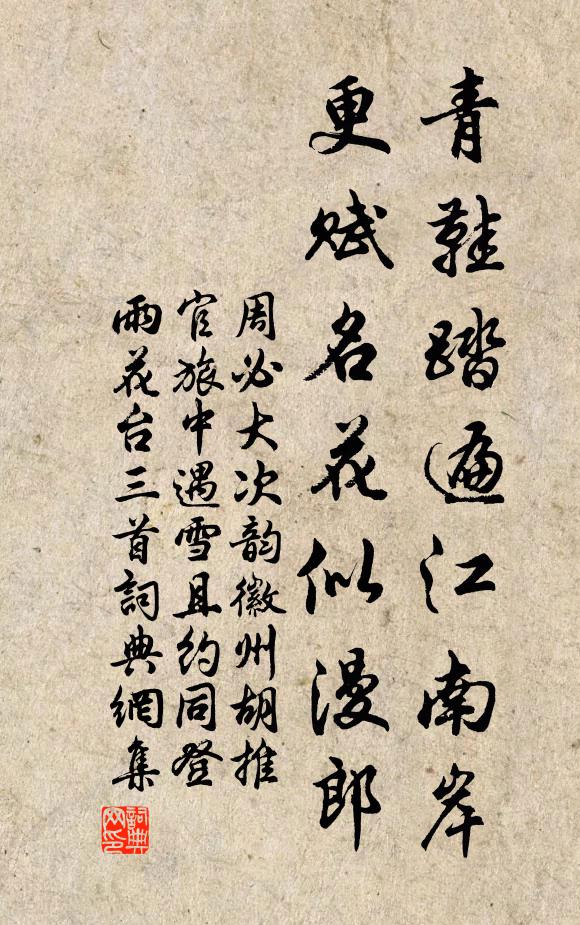 青鞋踏遍江南岸
更賦名花似漫郎
周必大次韵徽州胡推
官旅中遇雪且約同登
雨花台三首詞典網集
詞典网印